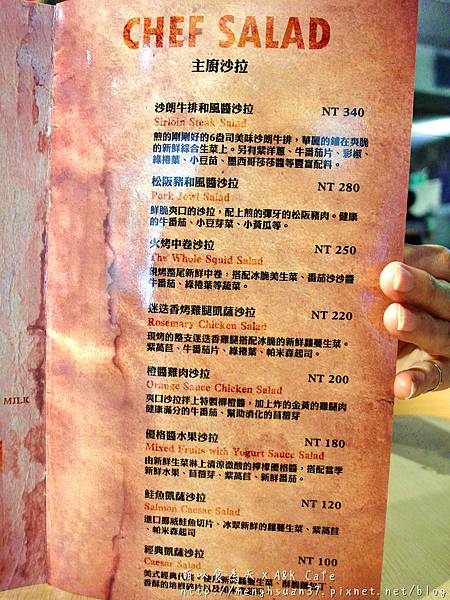 CHEF SALAD
主廚沙拉
沙朗牛排和風醬沙拉 NT 340
Sirloin Steak Salad
煎的剛剛好的6盎司美味沙朗牛排,華麗的鋪在爽脆
的新鮮綜合生菜上。另有紫洋蔥、牛番茄片、彩椒、
綠捲葉、小豆苗、墨西哥莎莎醬等豐富配料。
松阪豬和風醬沙拉 NT 280
Pork Jowl Salad
鮮脆爽口的沙拉,配上煎的彈牙的松阪豬肉。健康
的牛番茄、小豆芽菜、小黃瓜等。
火烤中卷沙拉 NT 250
The Whole Squid Salad
現烤整尾新鮮中卷,搭配冰脆美生菜、番茄沙沙醬
牛番茄、綠捲葉等蔬菜。
迷迭香烤雞腿凱薩沙拉 NT 220
Rosemary Chicken Salad
現烤的整支迷迭香雞腿搭配冰脆的新鮮蘿蔓生菜。
紫萵苣、牛番茄片、綠捲葉、帕米森起司。
橙醬雞肉沙拉 NT 200
Orange Sauce Chicken Salad
爽口沙拉拌上特製柳橙醬,加上炸的金黃的雞腿肉
健康滿分的牛番茄、幫助消化的苜蓿芽
優格醬水果沙拉 NT 180
Mixed Fruits with Yogurt Sauce Salad
由新鮮生菜淋上清涼微酸的檸檬優格醬,搭配當季
新鮮水果、苜蓿芽、紫萵苣、新鮮番茄。
鮭魚凱薩沙拉 NT 120
Salmon Caesar Salad
進口挪威鮭魚切片、冰翠新鮮的蘿蔓生菜、紫萵苣
、帕米森起司
經典凱薩沙拉 NT 100
Caesar Salad
美式經典
香酥的培根碎片
MILK
A&K Cafe
http://menghsuan37.pixnet.net/blog